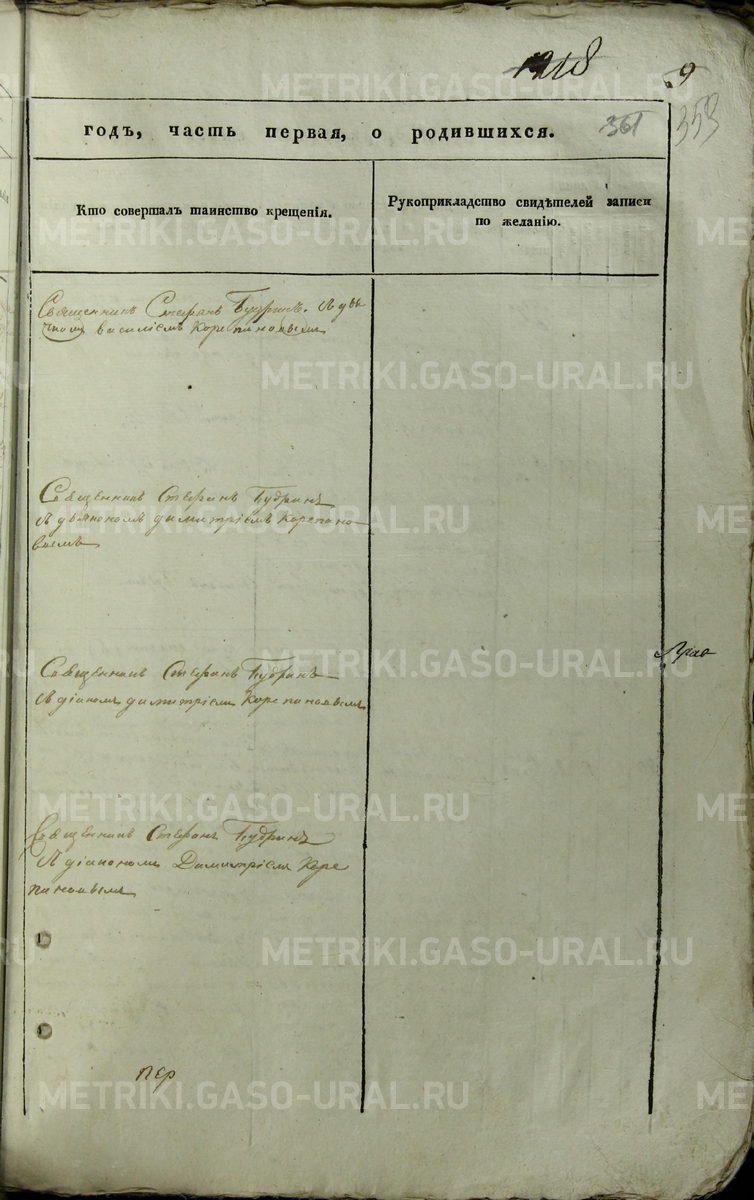 1218
9
годъ, часть первая, о родившихся.
361
353
Кто совершалъ таинство крещенія.
Рукоприкладство свидѣтелей записи
по желанію.
Священникъ Стефанъ Будринъ. Я дья
чкомъ василіемъ Корепановымъ
Священникъ Стефанъ Будринъ
Я дьякономъ димитріемъ Корепано-
вымъ
Священникъ Стефанъ Будринъ
Я діакономъ димитріемъ Корепановымъ
Священникъ Стефанъ Будринъ
Я діакономъ Димитріемъ Коре
пановымъ
пер
METRIKI.GASO-URAL.RU